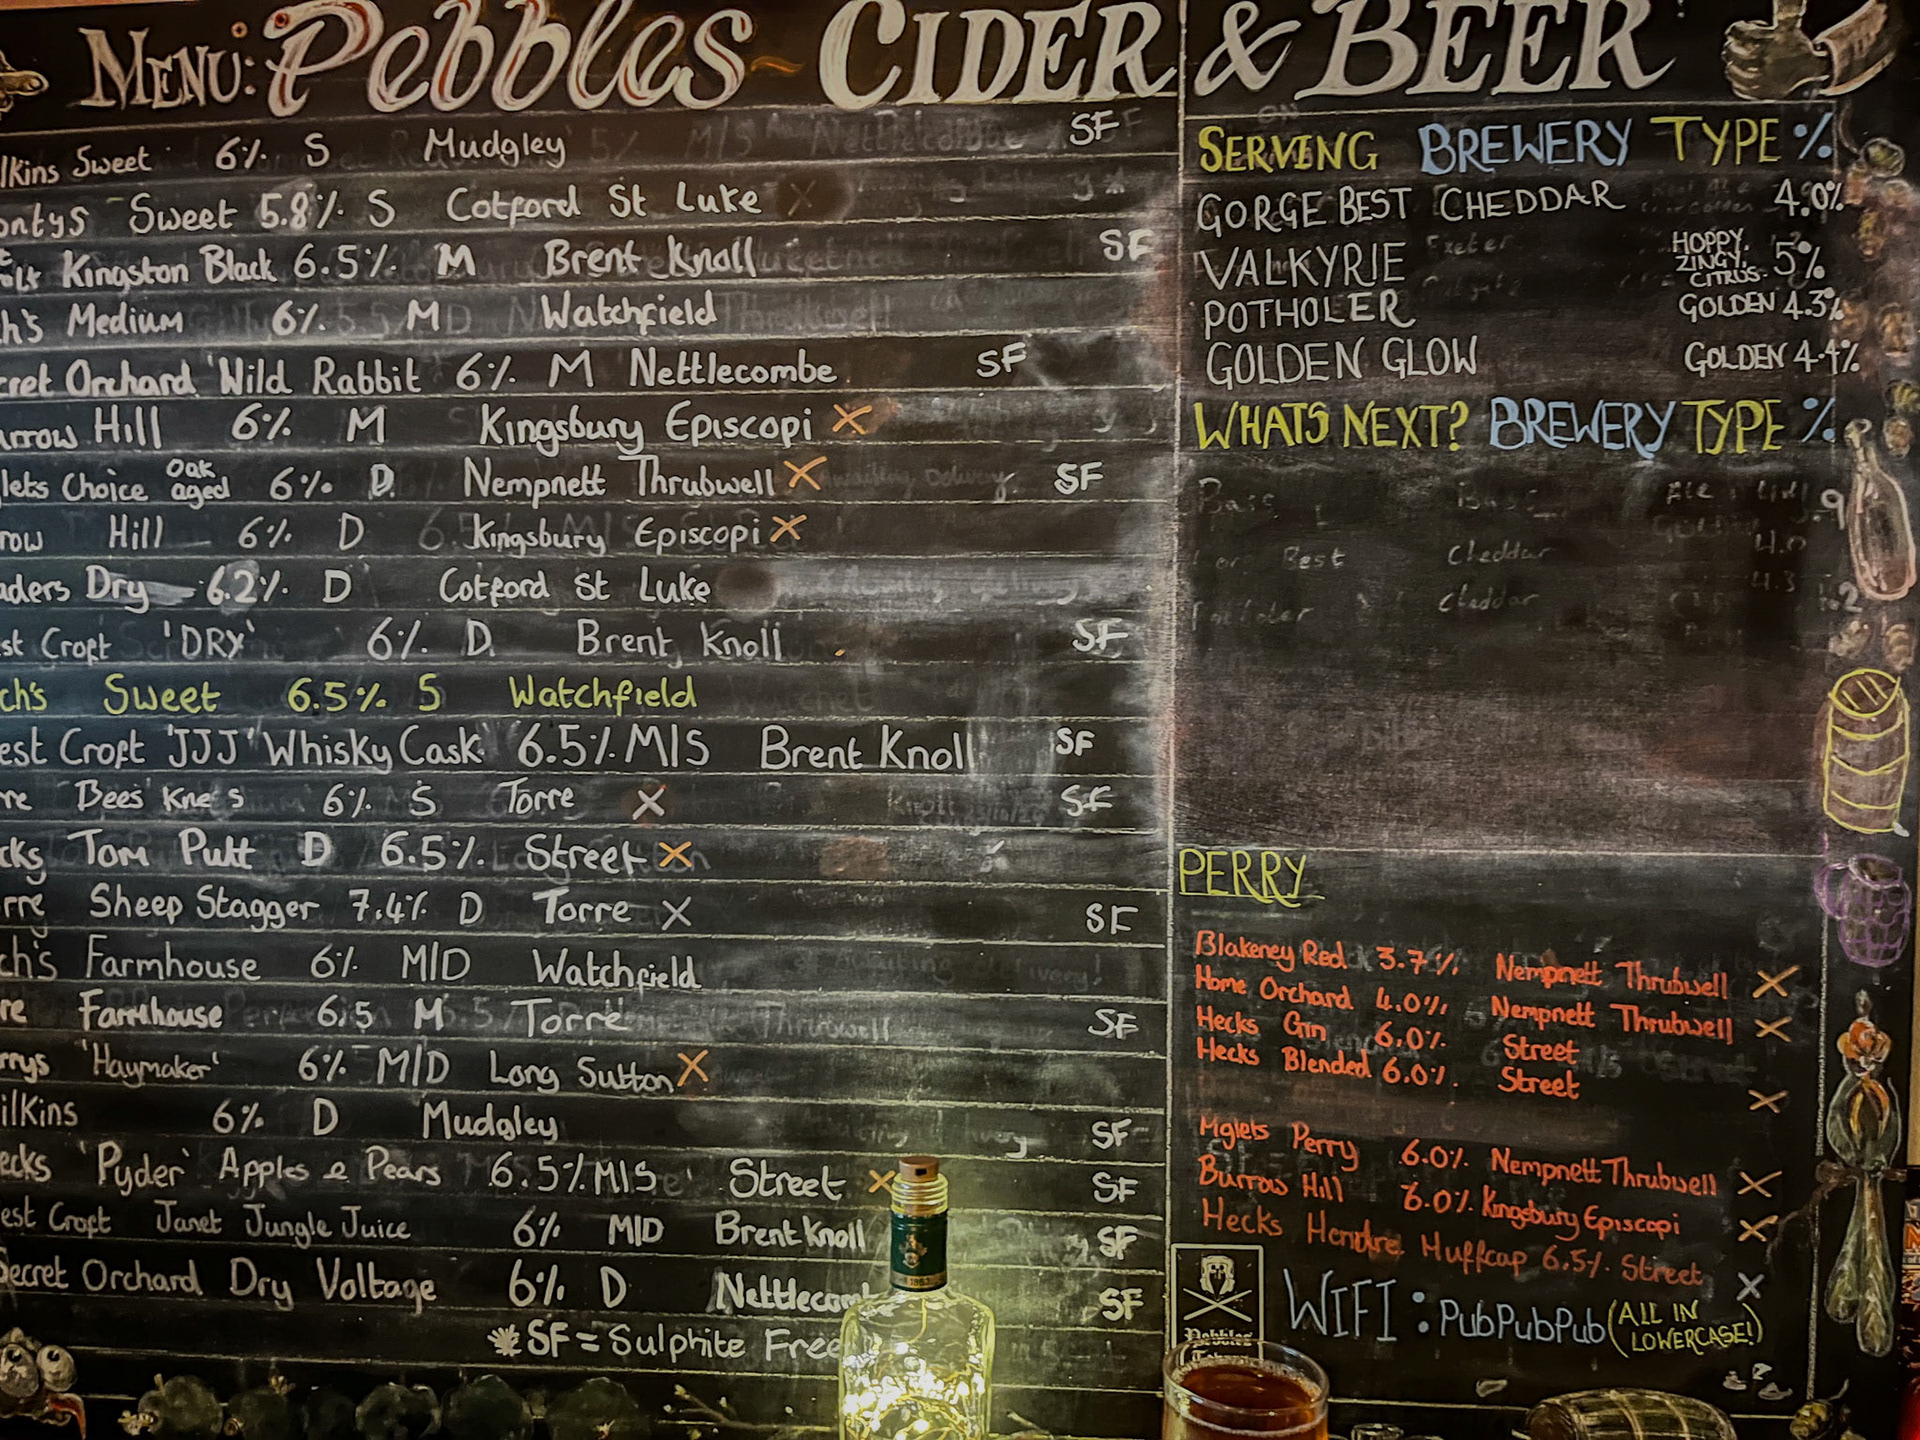 MENU: Pebbles CIDER & BEER
lkins Sweet 6% S Mudgley SF
ontys Sweet 5.8% S Cotford St Luke X
Kingston Black 6.5% M Brent Knoll SF
h's Medium 6% M Watchfield
cret Orchard 'Wild Rabbit 6% M Nettlecombe SF
urrow Hill 6% M Kingsbury Episcopi X
lets Choice Oak aged 6% D Nempnett Thrubwell X SF
row Hill 6% D Kingsbury Episcopi X
aders Dry 6.2% D Cotford St Luke
st Croft 'DRY' 6% D Brent Knoll SF
ch's Sweet 6.5% S Watchfield
est Croft 'JJJ' Whisky Cask 6.5% M/S Brent Knoll SF
rre Bees Knees 6% S Torre X SF
cks Tom Putt D 6.5% Street X
orre Sheep Stagger 7.4% D Torre X SF
ch's Farmhouse 6% M/D Watchfield
re Farmhouse 6.5 M Torre SF
rrys 'Haymaker' 6% M/D Long Sutton X
ilkins 6% D Mudgley SF
ecks 'Pyder' Apples e Pears 6.5% M/S Street X SF
est Croft Janet Jungle Juice 6% M/D Brent Knoll SF
Secret Orchard Dry Voltage 6% D Nettlecom SF
SF = Sulphite Free
SERVING BREWERY TYPE %
GORGE BEST CHEDDAR 4.0%
VALKYRIE HOPPY, ZINGY, CITRUS 5%
POTHOLER GOLDEN 4.3%
GOLDEN GLOW GOLDEN 4.4%
WHATS NEXT? BREWERY TYPE %
Bass
Best Cheddar 4.0
Cheddar 4.3
PERRY
Blakeney Red 3.7% Nempnett Thrubwell X
Home Orchard 4.0% Nempnett Thrubwell X
Hecks Gin 6.0% Street
Hecks Blended 6.0% Street X
Mglets Perry 6.0% Nempnett Thrubwell X
Burrow Hill 6.0% Kingsbury Episcopi X
Hecks Hendre Huffcap 6.5% Street X
WIFI: PubPubPub (ALL IN LOWERCASE!)
Pebbles